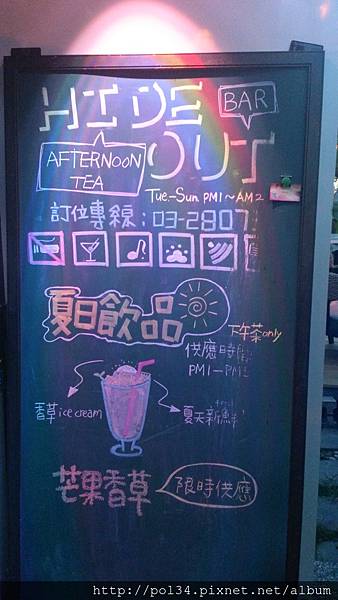 HIDE BAR
OUT
AFTERNOON
TEA
Tue.-Sun PM1～AM2
訂位專線：03-2807
夏日飲品
下午茶only
供應時間:
PM1—PM
香草 ice cream
夏天新鮮
芒果香草
限時供應
http://pol34.pixnet.net/album